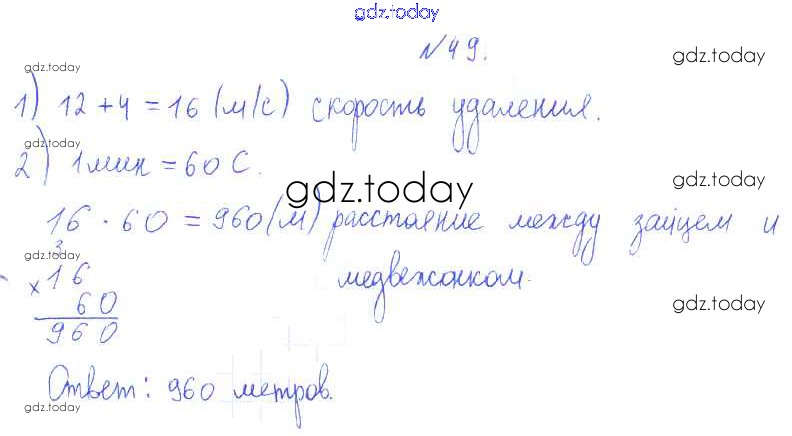 gdz.today
№49.
gdz.today
gdz.today
1) 12 + 4 = 16 (м/с) скорость удаления.
gdz.today
2) 1 мин = 60 С.
gdz.today
gdz.today
16 · 60 = 960 (м) расстояние между зайцем и
медвежонком.
gdz.today
3
× 16
60
960
gdz.today
Ответ: 960 метров.
gdz.today
gdz.today